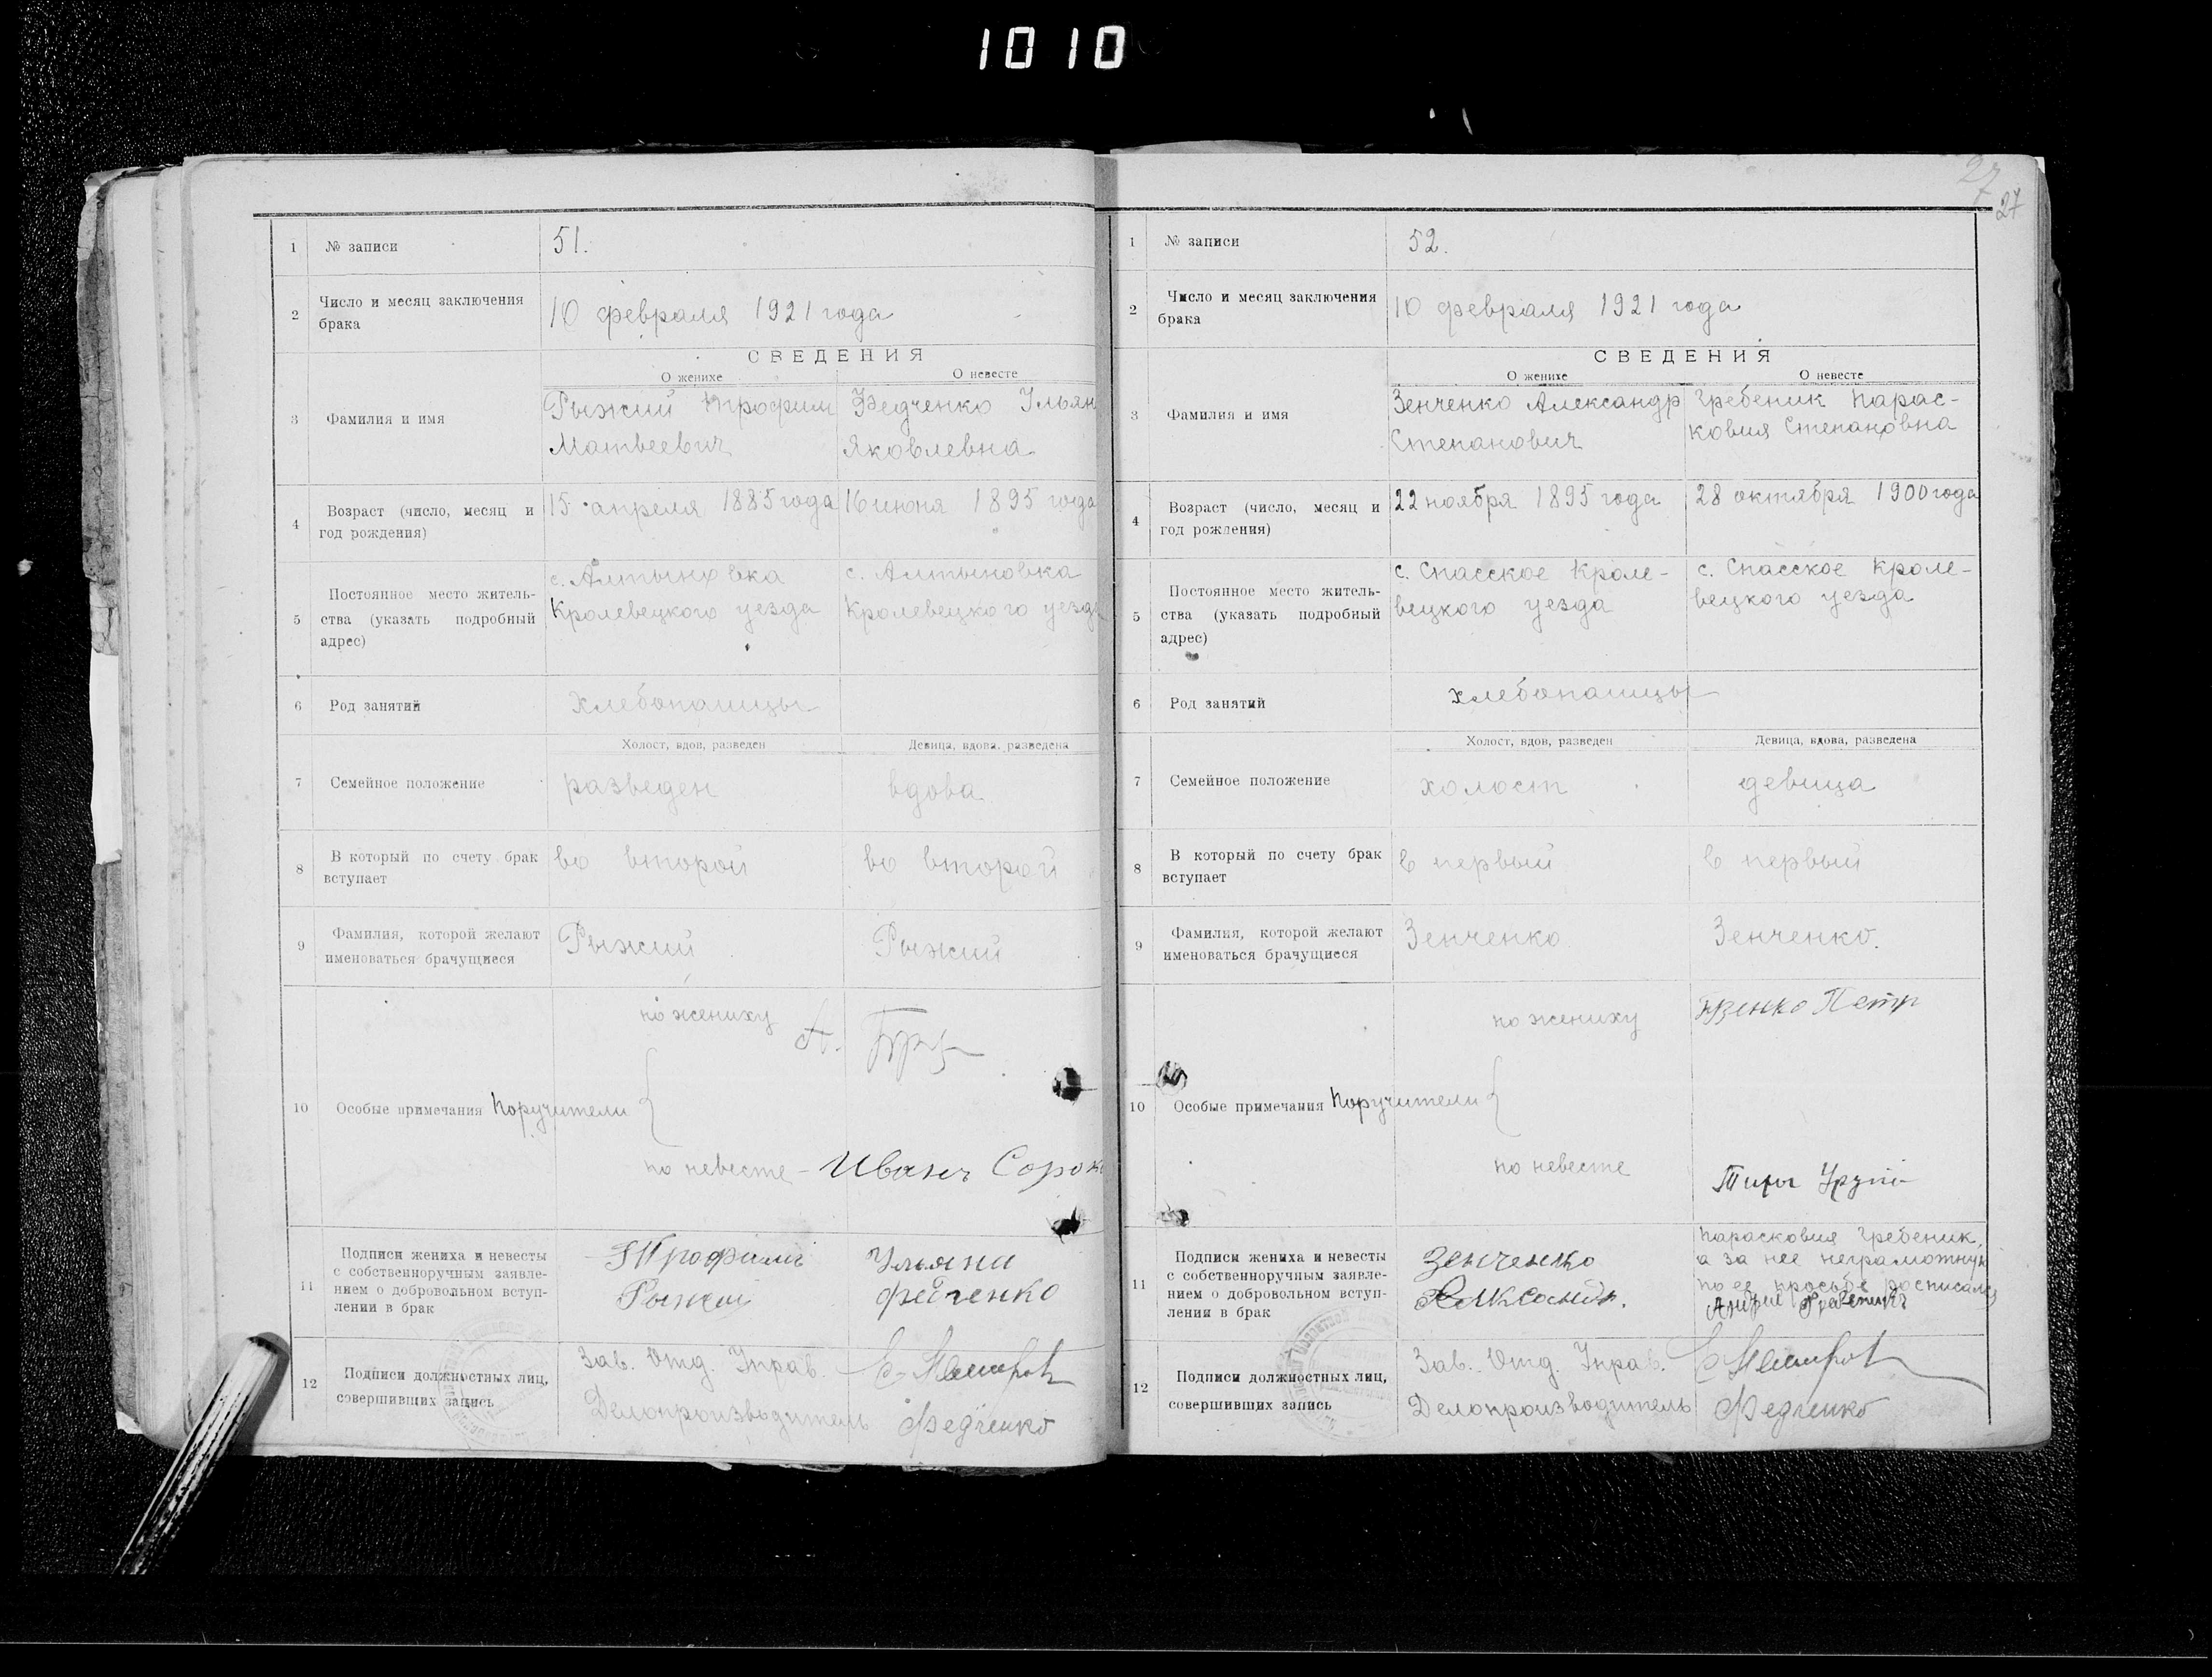 1010
1 № записи 51.
2 Число и месяц заключения
брака
10 февраля 1921 года
СВЕДЕНИЯ
О женихе О невесте
3 Фамилия и имя
Рыжий Трофим
Матвеевич
Федченко Ульян
Яковлевна
4 Возраст (число, месяц и
год рождения)
15 апреля 1885 года
16 июня 1895 года
5 Постоянное место житель-
ства (указать подробный
адрес)
с. Алтыновка
Кролевецкого уезда
с. Алтыновка
Кролевецкого уезда
6 Род занятий хлебопашцы
Холост, вдов, разведен Девица, вдова, разведена
7 Семейное положение разведен вдова
8 В который по счету брак
вступает
во второй во второй
9 Фамилия, которой желают
именоваться брачущиеся
Рыжий Рыжий
по жениху
10 Особые примечания Поручители
по невесте – Иванъ Сорок
11 Подписи жениха и невесты
с собственноручным заявле-
нием о добровольном вступ-
лении в брак
Трофимъ
Рыжий
Ульяна
Федченко
12 Подписи должностных лиц,
совершивших запись
Зав. Отд. Управ.
Делопроизводитель Федченко
27
27
1 № записи 52.
2 Число и месяц заключения
брака
10 февраля 1921 года
СВЕДЕНИЯ
О женихе О невесте
3 Фамилия и имя
Зенченко Александр
Степанович
Гребеник Парас-
ковия Степановна
4 Возраст (число, месяц и
год рождения)
22 ноября 1895 года
28 октября 1900 года
5 Постоянное место житель-
ства (указать подробный
адрес)
с. Спасское Кроле-
вецкого уезда
с. Спасское Кроле-
вецкого уезда
6 Род занятий хлебопашцы
Холост, вдов, разведен Девица, вдова, разведена
7 Семейное положение холост девица
8 В который по счету брак
вступает
в первый в первый
9 Фамилия, которой желают
именоваться брачущиеся
Зенченко Зенченко.
по жениху Петр
10 Особые примечания Поручители
по невесте
11 Подписи жениха и невесты
с собственноручным заявле-
нием о добровольном вступ-
лении в брак
Зенченко
Александр.
Парасковия Гребеник,
а за нее неграмотную
по ее просьбе росписался
Гребеникъ
12 Подписи должностных лиц,
совершивших запись
Зав. Отд. Управ.
Делопроизводитель Федченко